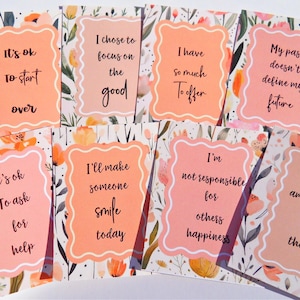 It's ok
To start
over
I chose to
focus on
the
good
I have
so much
To offer
My pas
doesn't
define m
future
's ok
To ask
for
help
I'll make
someone
smile
today
I'm
not responsible
for
others
happiness
an
th